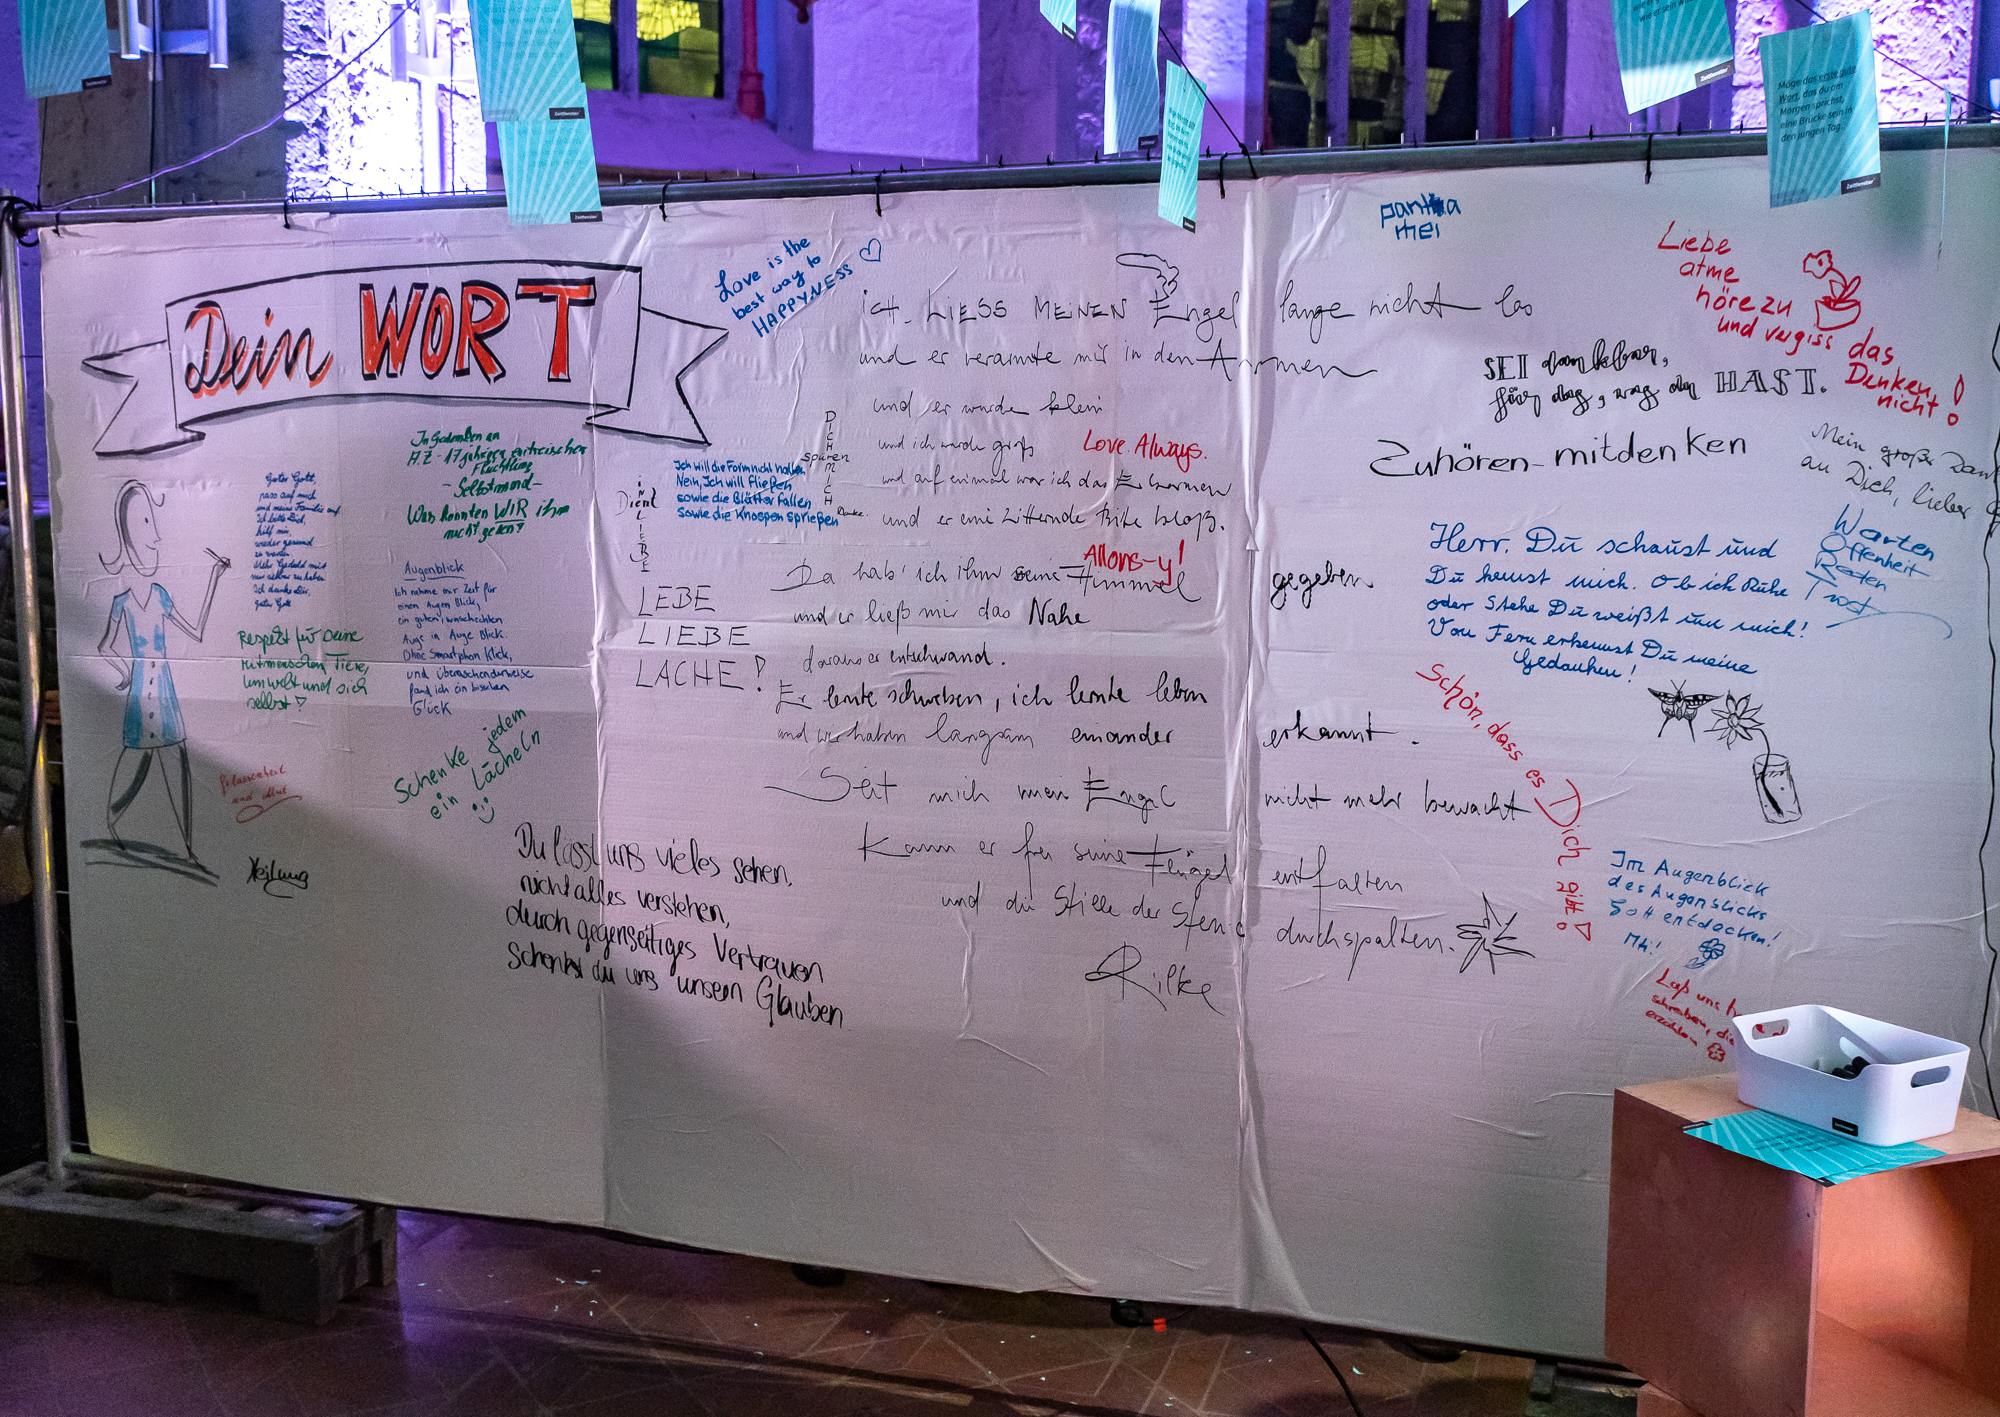 Dein WORT
Guter Gott,
pass auf mich
und meine Familie auf.
Ich bitte Dich,
hilf mir,
wieder gesund
zu werden.
Mehr Geduld mit
mir selber zu haben
Ich danke Dir,
Guter Gott
Respekt für Deine
Mitmenschen, Tiere,
Umwelt und sich
selbst!
Gelassenheit
und Mut
Heilung
In Gedenken an
A.Z - 17 jährigen
Flüchtling
- Selbstmord -
Was konnten WIR ihm
nicht geben?
Augenblick
Ich nehme mir Zeit für
einen Augen Blick,
ein guten,
Auge in Auge Blick.
Ohne Smartphon Klick,
und überraschenderweise
fand ich ein bisschen
Glück
Schenke jedem
ein Lächeln
Du lässt uns vieles sehen,
nicht alles verstehen,
durch gegenseitiges Vertrauen
Schenkst du uns unsern Glauben
Love is the
best way to
HAPPYNESS
Ich will die Form nicht halten
Nein, Ich will Fließen
sowie die Blätter fallen
sowie die Knospen sprießen
IN LIEBE
Dient
DICH MICH
spüren
Danke
LEBE
LIEBE
LACHE!
ICH LIESS MEINEN Engel lange nicht los
und er verarmte mir in den Armen
und er wurde klein
und ich wurde groß
und auf einmal war ich das Erbarmen
und er eine zitternde Bitte bloß.
Love. Always.
Allons-y!
Da hab' ich ihm seine Himmel gegeben
und er ließ mir das Nahe
daraus er entschwand.
Er lernte schweben, ich lernte leben
und wir haben langsam einander erkannt.
Seit mich mein Engel nicht mehr bewacht
Kann er frei seine Flügel entfalten
und die Stille der Sterne durchspalten.
Rilke
panta
rhei
Liebe
atme
höre zu
und vergiss das
Denken
nicht!
SEI dankbar,
für das, was du HAST.
Zuhören - mitdenken
Mein großer Dank
an Dich, lieber
Warten
Offenheit
Reden
Trost
Herr. Du schaust und
Du kennst mich. Ob ich Ruhe
oder Stehe Du weißt um mich!
Von Fern erkennst Du meine
Gedanken!
Schön, dass es Dich gibt!
Im Augenblick
des Augenblicks
Gott entdecken!
Laß uns
schreiben, die
erzählen
Möge das erste gute
Wort, das du am
Morgen sprichst,
eine Brücke sein in
den jungen Tag.
wie er sein will
Zeitfenster
Zeitfenster
Zeitfenster
Zeitfenster